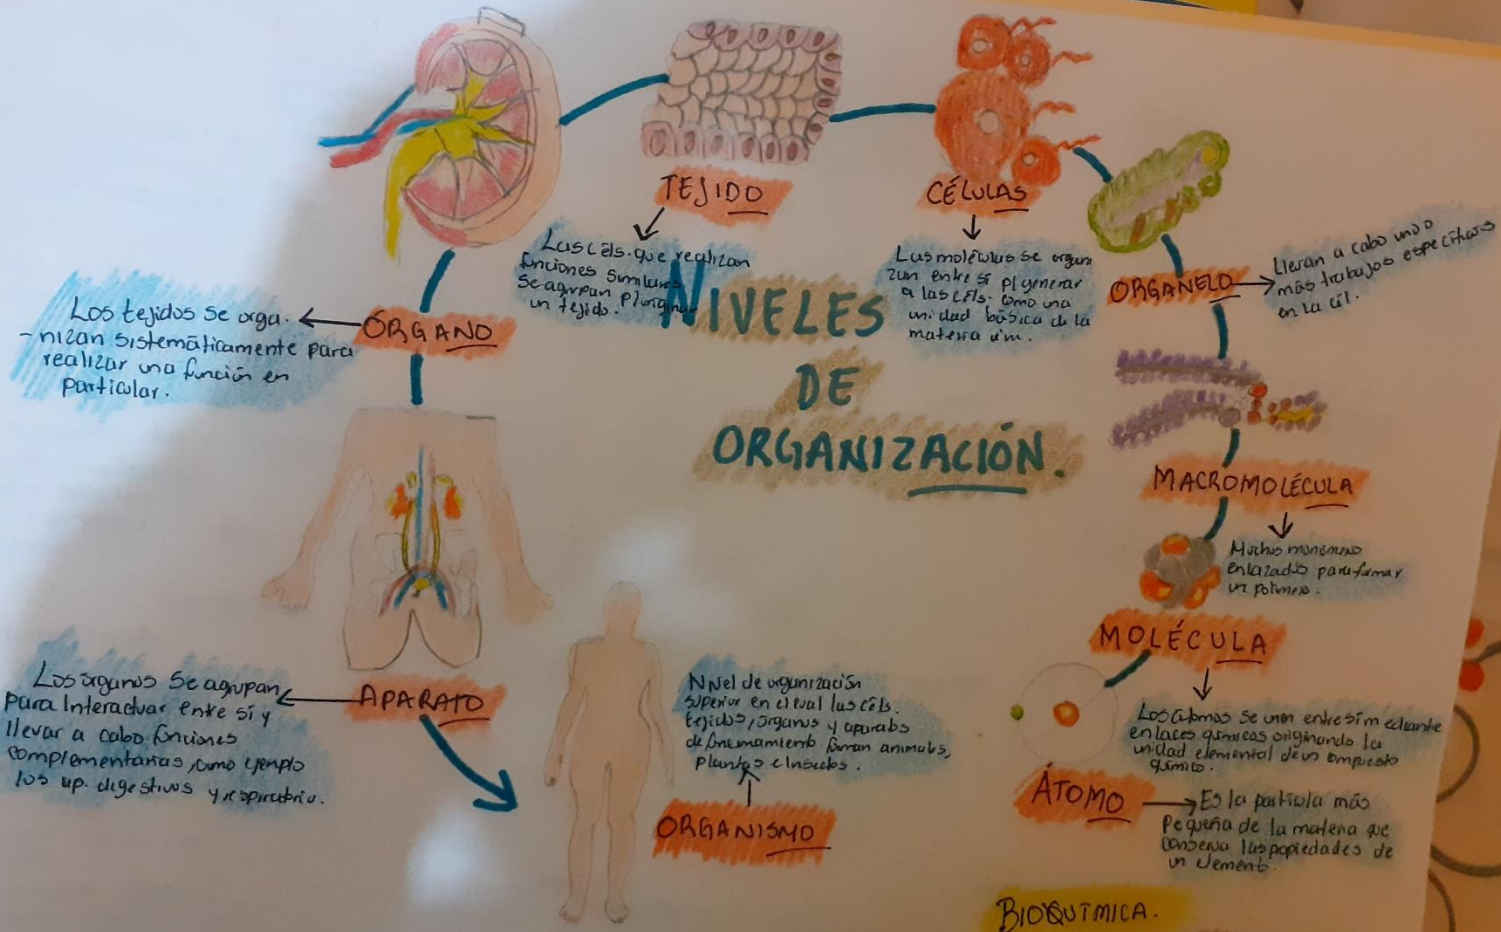 NIVELES
DE
ORGANIZACIÓN.
TEJIDO
Las céls. que realizan
funciones similares
se agrupan p/
un tejido.
CÉLULAS
Las moléculas se organi
zan entre sí p/generar
a las céls. como una
unidad básica de la
materia
ORGANELO
Llevan a cabo uno o
más trabajos específicos
en la cél.
MACROMOLÉCULA
Muchos
enlazados para formar
un polímero.
MOLÉCULA
Los átomos se unen entre sí mediante
enlaces químicos originando la
unidad elemental de un compuesto
químico.
ÁTOMO
Es la partícula más
pequeña de la materia que
conserva las propiedades de
un elemento.
ÓRGANO
Los tejidos se orga-
-nizan sistemáticamente para
realizar una función en
particular.
APARATO
Los órganos se agrupan
para Interactuar entre sí y
llevar a cabo funciones
complementarias, como ejemplo
los ap. digestivos y respiratorio.
Nivel de organización
superior en el cual las céls.
tejidos, órganos y aparatos
de funcionamiento forman animales,
plantas e Insectos.
ORGANISMO
BIOQUÍMICA.